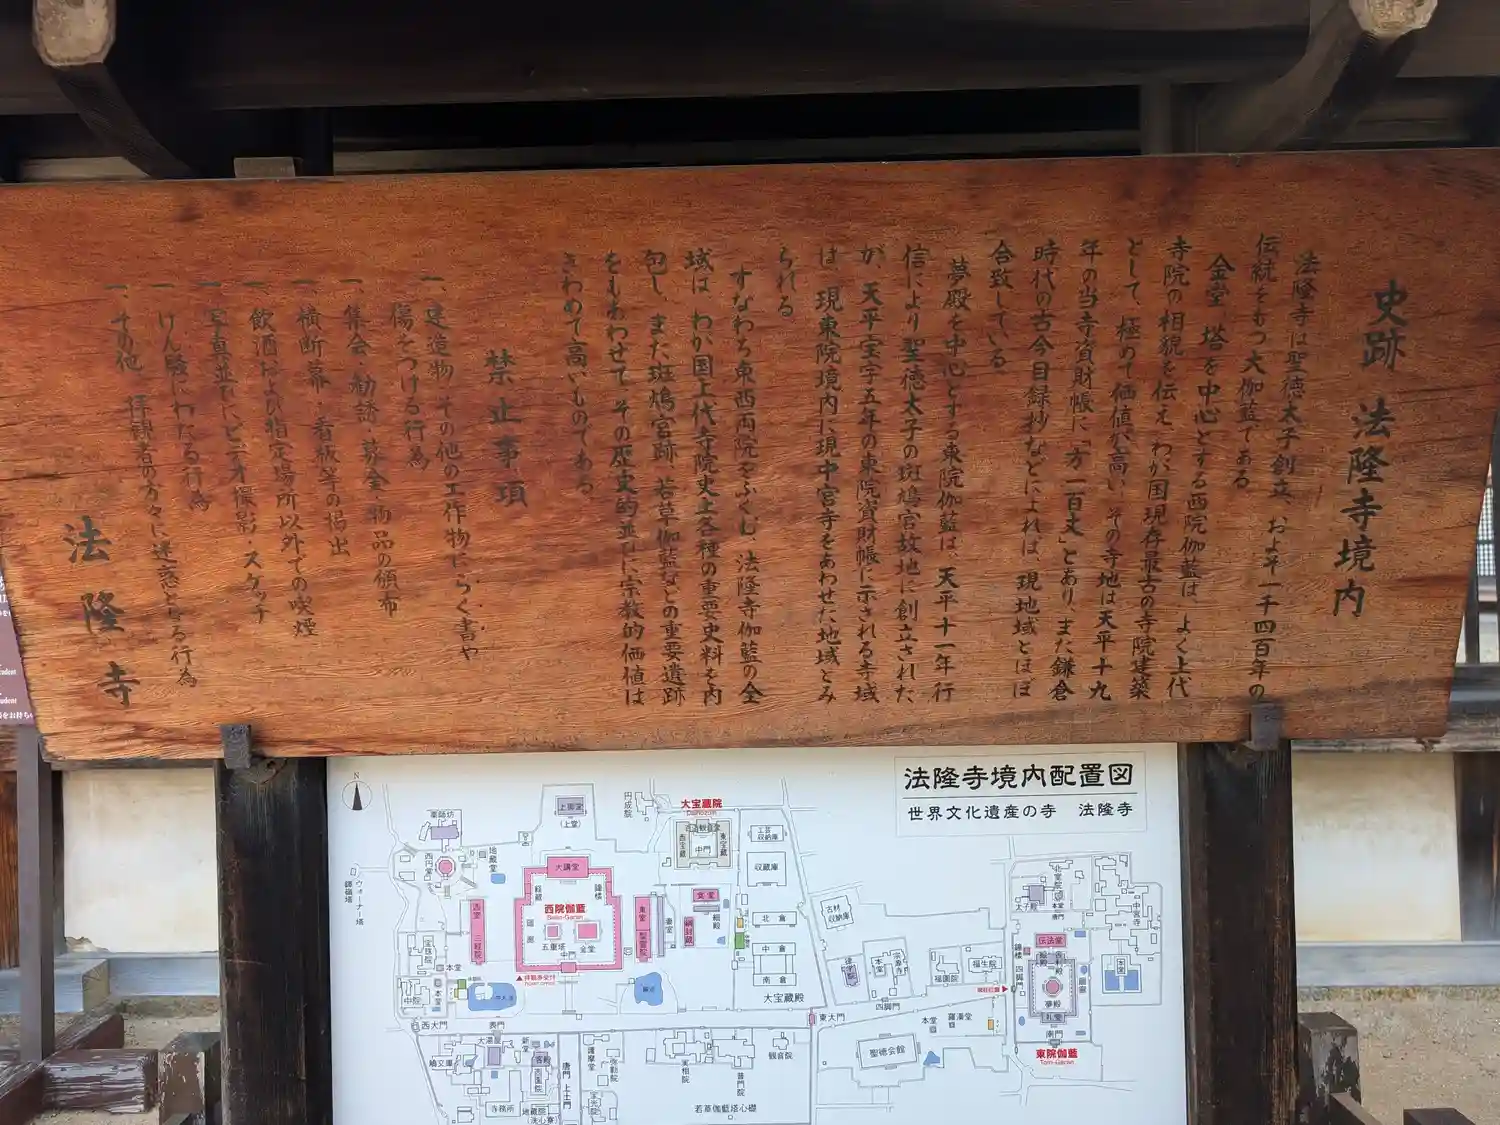 史跡 法隆寺境内
法隆寺は聖徳太子創立、およそ一千四百年の
伝統をもつ大伽藍である
金堂、塔を中心とする西院伽藍は、よく上代
寺院の相貌を伝え、わが国現存最古の寺院建築
として、極めて価値が高い、その寺地は天平十九
年の当寺資財帳に「方一百丈」とあり、また鎌倉
時代の古今目録抄などによれば、現地域とほぼ
合致している
夢殿を中心とする東院伽藍は、天平十一年行
信により聖徳太子の斑鳩宮故地に創立された
が、天平宝字五年の東院資財帳に示される寺域
は、現東院境内に現中宮寺をあわせた地域とみ
られる
すなわち東西両院をふくむ、法隆寺伽藍の全
域は、わが国上代寺院史上各種の重要史料を内
包し、また斑鳩宮跡、若草伽藍などの重要遺跡
をもあわせて、その歴史的並びに宗教的価値は
きわめて高いものである
禁止事項
一、建造物、その他の工作物にらく書や
傷をつける行為
一、集会、勧誘、募金、物品の頒布
一、横断幕、看板等の掲出
一、飲酒および指定場所以外での喫煙
一、写真並びにビデオ撮影、スケッチ
一、けん騒にわたる行為
一、その他、拝観者の方々に迷惑となる行為
法隆寺
法隆寺境内配置図
世界文化遺産の寺 法隆寺
N
薬師坊
西円堂
地蔵堂
上御堂
(上堂)
円成院
大宝蔵院
Daihozoin
百済観音堂
西宝蔵
中門
東宝蔵
工芸収納庫
収蔵庫
ウォーナー塔
大講堂
経蔵
鐘楼
西院伽藍
Saiin-Garan
廻廊
五重塔
金堂
中門
西室
三経院
東室
聖霊院
妻室
食堂
細殿
綱封蔵
北倉
中倉
南倉
大宝蔵殿
古材収納庫
宝珠院
本堂
中院
本堂
西大門
表門
四脚門
東大門
福園院
福生院
宗源寺
本堂
北室院
本堂
中宮寺
本堂
伝法堂
鐘楼
四脚門
舎利殿
絵殿
廻廊
夢殿
礼堂
南門
東院伽藍
Toin-Garan
本堂
羅漢堂
聖徳会館
大湯屋
新堂
客殿
西園院
寺務所
地蔵院
(洗心寮)
唐門
上土門
護摩堂
弥勒院
宝光院
実相院
普門院
観音院
若草伽藍塔心礎